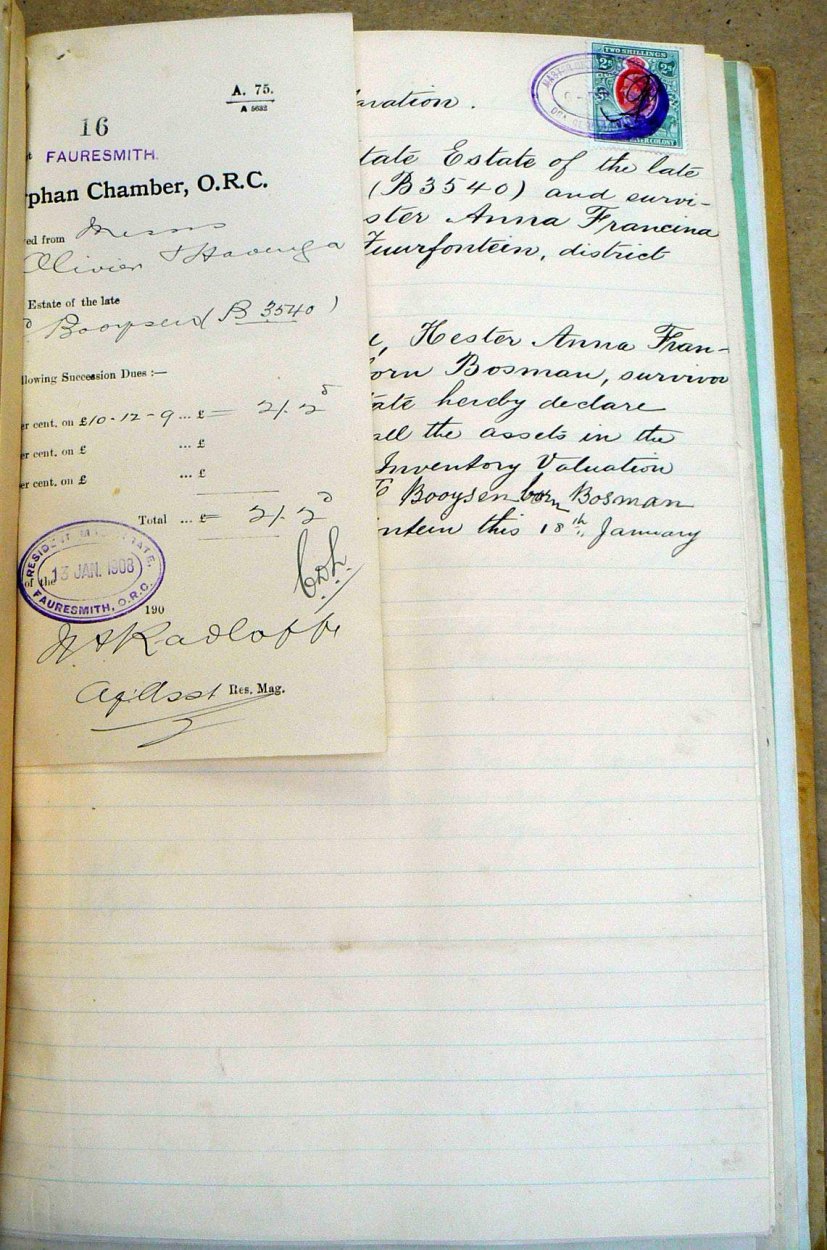 A. 75.
A 5632
16
FAURESMITH.
rphan Chamber, O.R.C.
ed from Messrs
Olivier & Havenga
Estate of the late
Booysen (B 3540)
llowing Succession Dues :—
er cent. on £10-12-9 ... £ = 2/. 2d
er cent. on £ ... £
er cent. on £ ... £
Total ... £ = 2/. 2d
RESIDENT MAGISTRATE.
13 JAN. 1908
FAURESMITH, O.R.C.
of the
190
Radloff
Ag. Asst Res. Mag.
aration.
TWO SHILLINGS
2s 2s
tate Estate of the late
(B3540) and survi-
ster Anna Francina
Zuurfontein, district
, Hester Anna Fran-
orn Bosman, survivor
tate hereby declare
all the assets in the
Inventory Valuation
Booysen born Bosman
ntein this 18th January